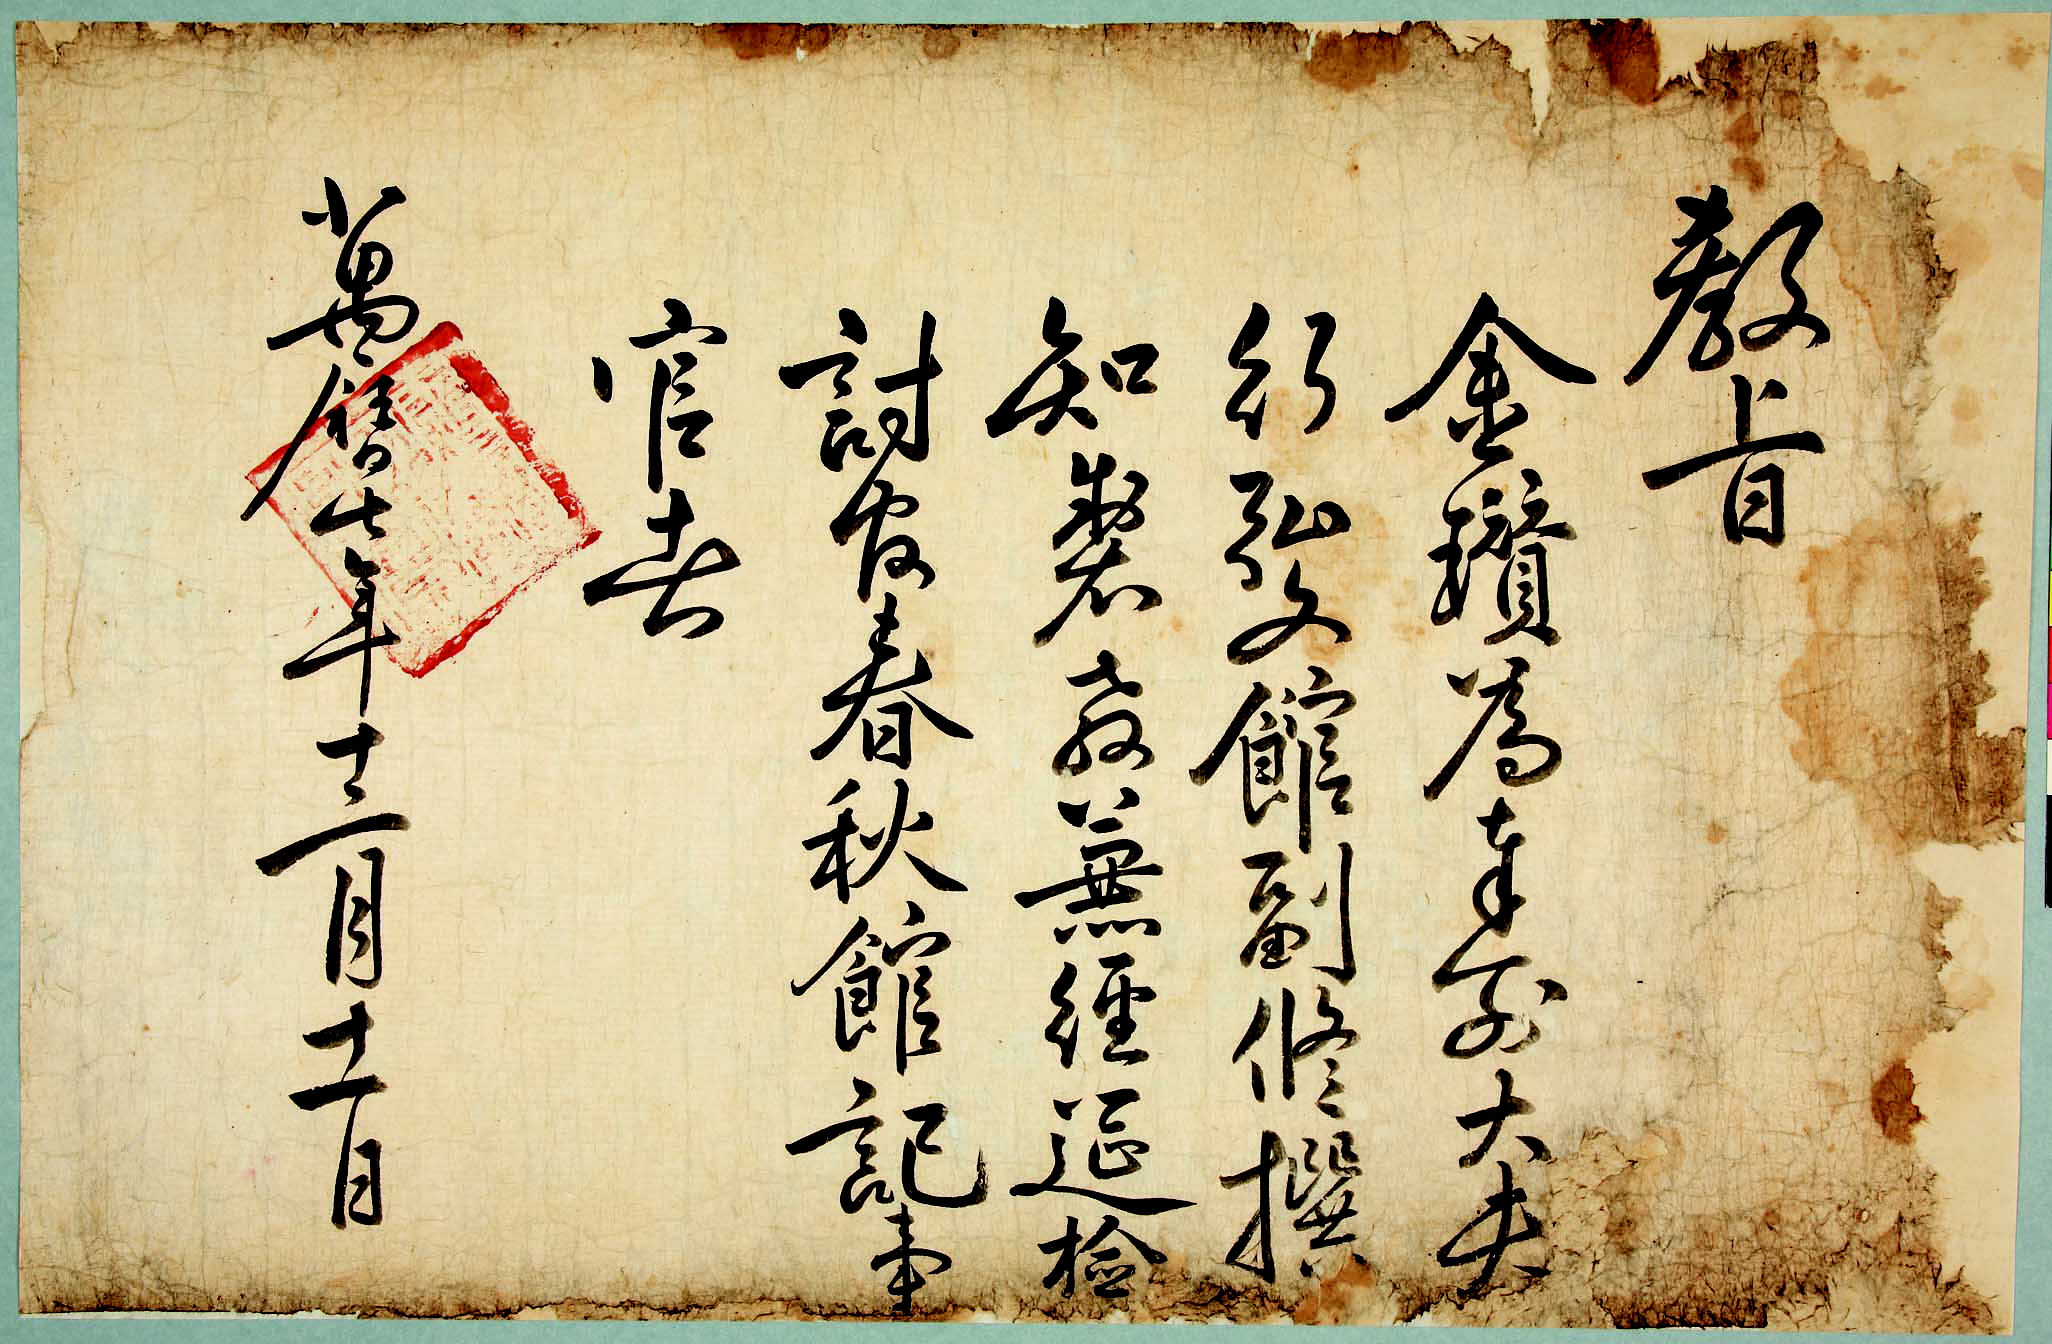 敎旨
金瓚爲奉列大夫
行弘文館副修撰
知製敎兼經筵檢
討官春秋館記事
官者
萬曆七年十二月十一日